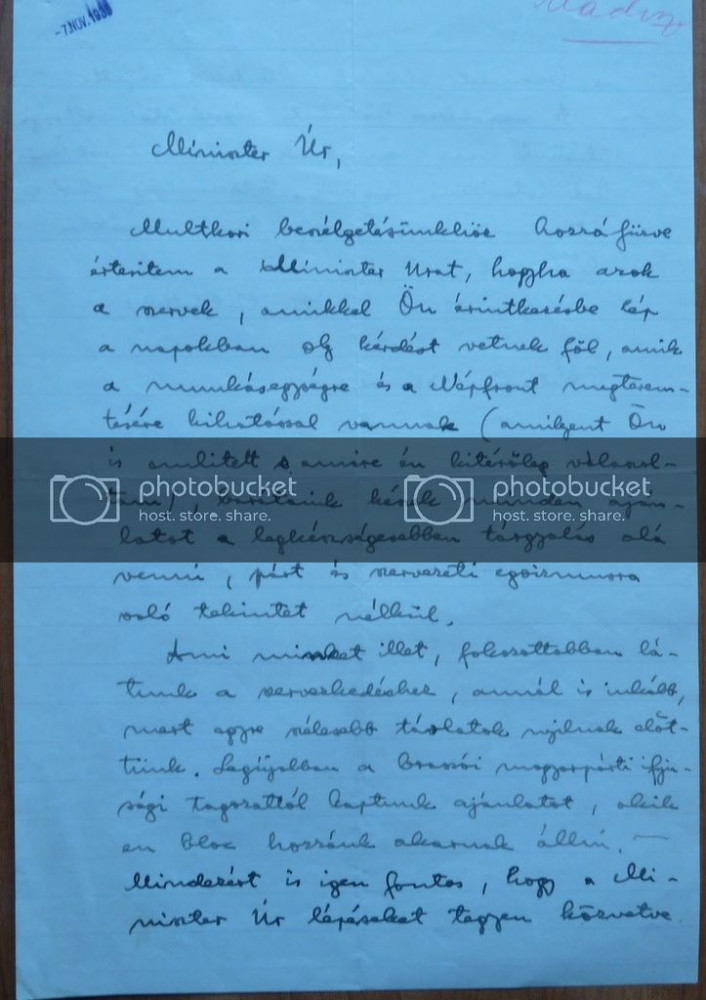 -7.NOV.1936
Minister Úr,
Multkori beszélgetésünkhöz hozzáfűzve
értesitem a Minister Urat, hogyha azok
a szervek, amikkel Ön érintkezésbe lép
a napokban oly kérdést vetnek föl, amik
a munkásegységre és a Népfront megterem-
tésére kihatással vannak (amilyent Ön
is emlitett s amire én kitérőleg válaszol-
tam), barátaink készek minden aján-
latot a legkészségesebben tárgyalás alá
venni, párt és szervezeti egoizmusra
való tekintet nélkül.
Ami minket illet, fokozottabban lá-
tunk a szervezkedéshez, annál is inkább,
mert egyre szélesebb távlatok nyilnak előt-
tünk. Legújabban a brassói magyarpárti ifju-
sági tagozattól kaptunk ajánlatot, akik
en bloc hozzánk akarnak állni. —
Mindezért is igen fontos, hogy a Mi-
nister Úr lépéseket tegyen közvetve
photobucket
host. store. share.
photobucket
host. store. share.